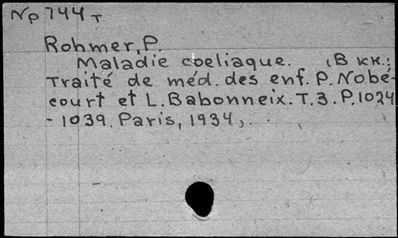 Np 744 т
Rohmer, P.
Maladie coeliaque. (В кн.:
Traité de méd. des enf. P. Nobé-
court et L. Babonneix. T. 3. P. 1024
- 1039. Paris, 1934,